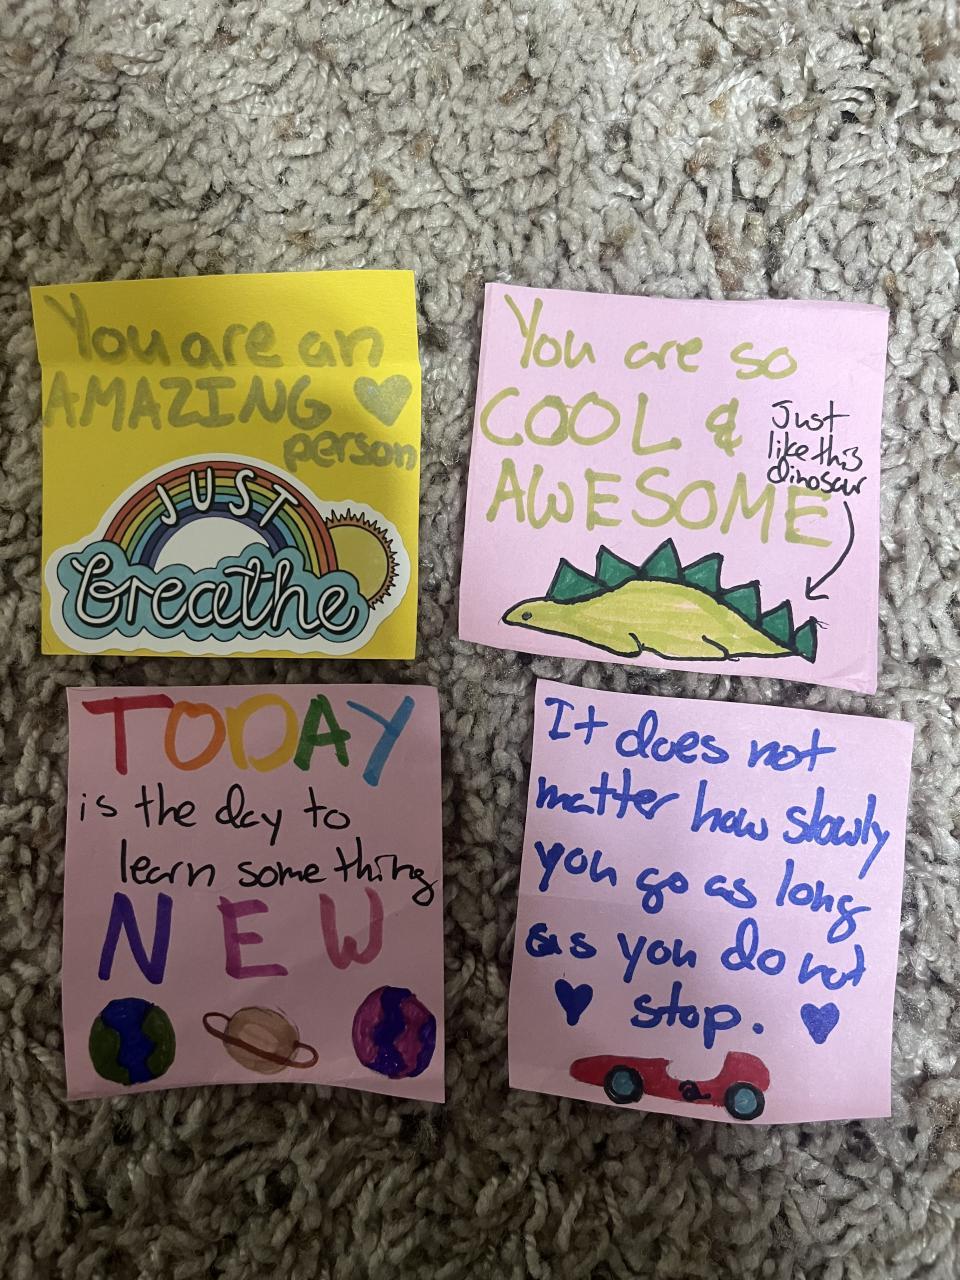 You are an
AMAZING
person
JUST
breathe
You are so
COOL &
AWESOME
Just
like this
dinosaur
TODAY
is the day to
learn something
NEW
It does not
matter how slowly
you go as long
as you do not
stop.